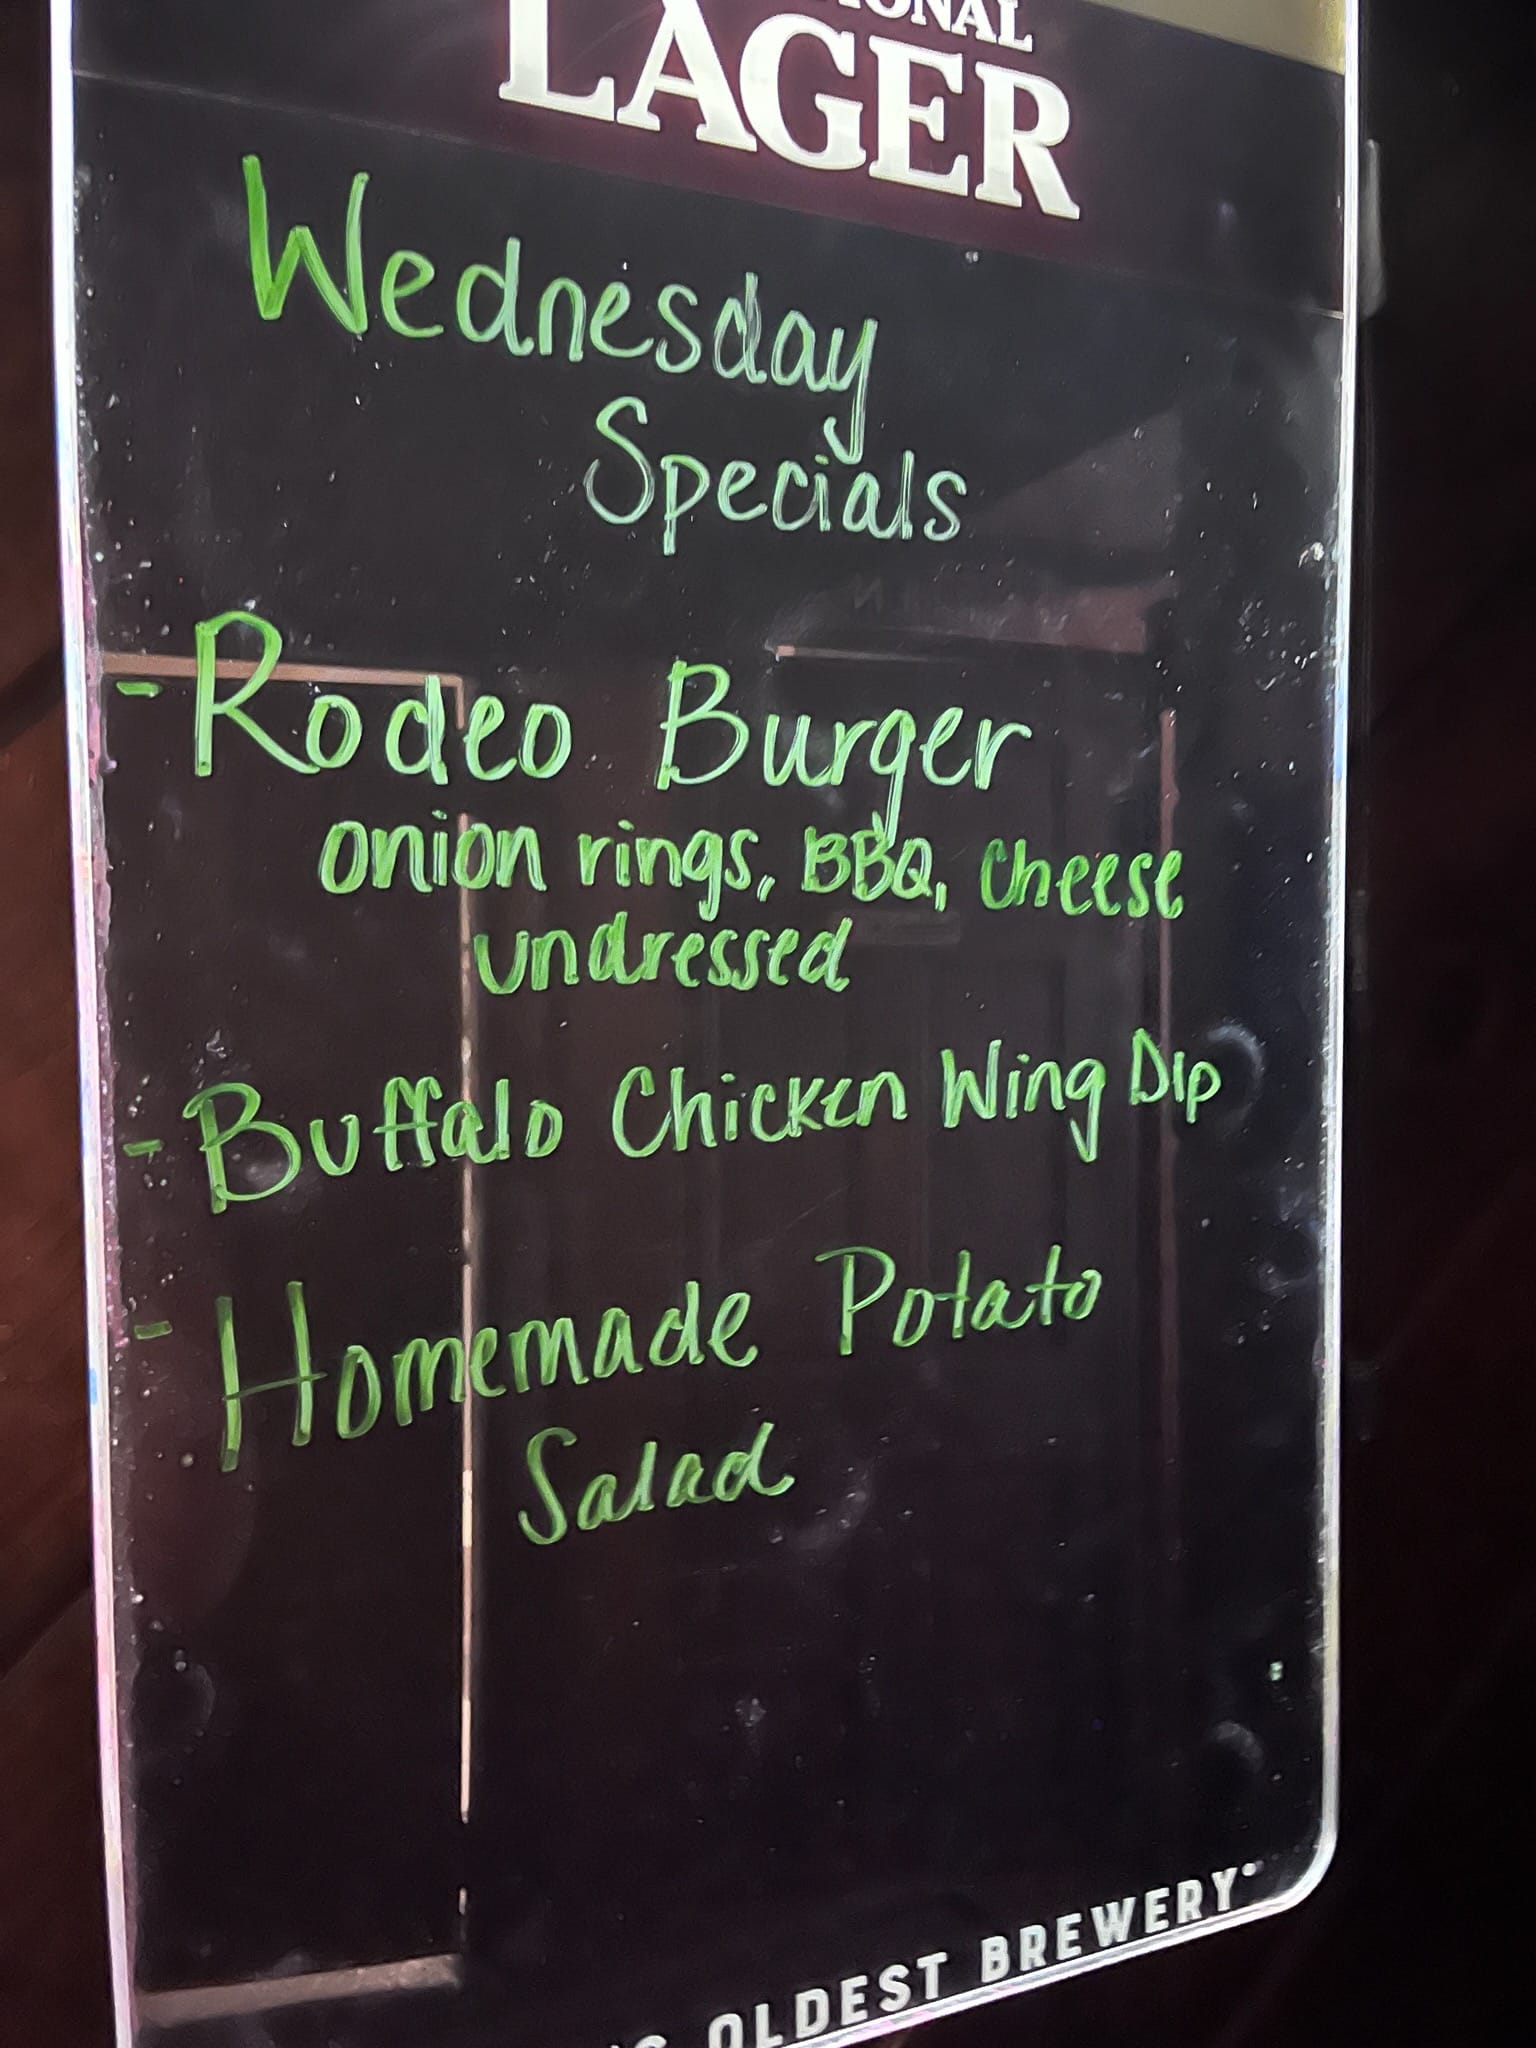 LAGER
Wednesday
Specials
- Rodeo Burger
onion rings, BBQ, Cheese
undressed
- Buffalo Chicken Wing Dip
- Homemade Potato
Salad
OLDEST BREWERY